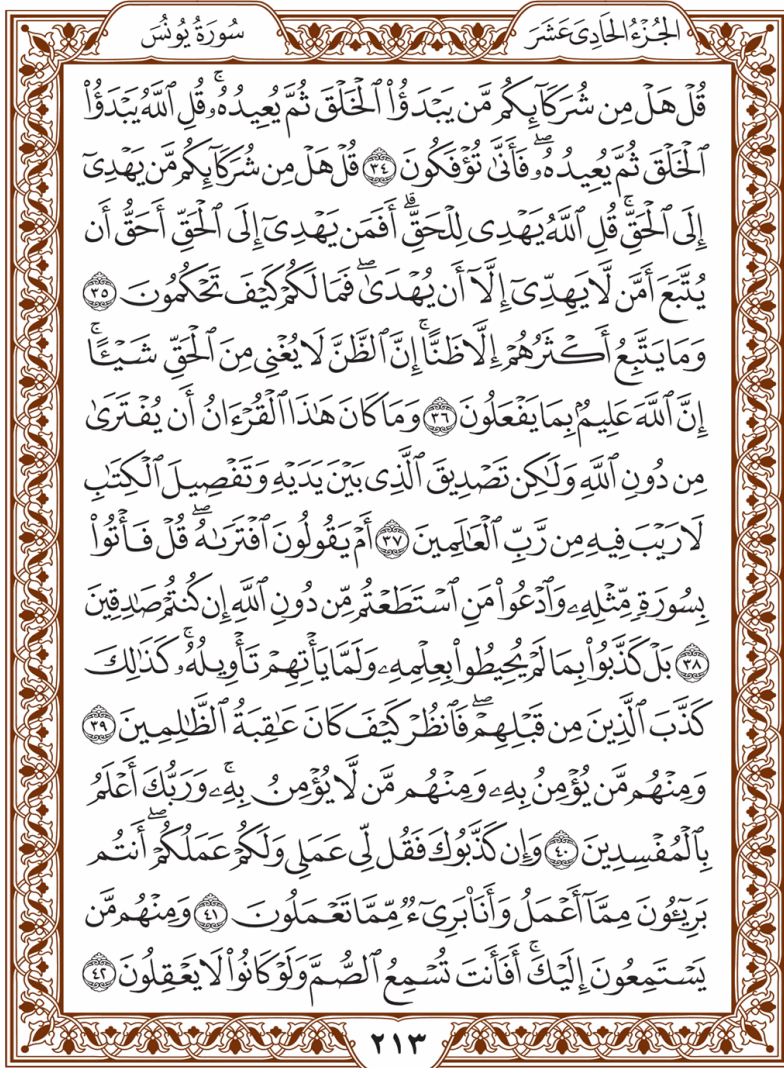 الجُزْءُ الحَادِي عَشَرَ
سُورَةُ يُونُسَ
قُلۡ هَلۡ مِن شُرَكَآئِكُم مَّن يَبۡدَؤُاْ ٱلۡخَلۡقَ ثُمَّ يُعِيدُهُۥۚ قُلِ ٱللَّهُ يَبۡدَؤُاْ
ٱلۡخَلۡقَ ثُمَّ يُعِيدُهُۥۖ فَأَنَّىٰ تُؤۡفَكُونَ ٣٤ قُلۡ هَلۡ مِن شُرَكَآئِكُم مَّن يَهۡدِيٓ
إِلَى ٱلۡحَقِّۚ قُلِ ٱللَّهُ يَهۡدِي لِلۡحَقِّۗ أَفَمَن يَهۡدِيٓ إِلَى ٱلۡحَقِّ أَحَقُّ أَن
يُتَّبَعَ أَمَّن لَّا يَهِدِّيٓ إِلَّآ أَن يُهۡدَىٰۖ فَمَا لَكُمۡ كَيۡفَ تَحۡكُمُونَ ٣٥
وَمَا يَتَّبِعُ أَكۡثَرُهُمۡ إِلَّا ظَنًّاۚ إِنَّ ٱلظَّنَّ لَا يُغۡنِي مِنَ ٱلۡحَقِّ شَيۡـًٔاۚ
إِنَّ ٱللَّهَ عَلِيمُۢ بِمَا يَفۡعَلُونَ ٣٦ وَمَا كَانَ هَٰذَا ٱلۡقُرۡءَانُ أَن يُفۡتَرَىٰ
مِن دُونِ ٱللَّهِ وَلَٰكِن تَصۡدِيقَ ٱلَّذِي بَيۡنَ يَدَيۡهِ وَتَفۡصِيلَ ٱلۡكِتَٰبِ
لَا رَيۡبَ فِيهِ مِن رَّبِّ ٱلۡعَٰلَمِينَ ٣٧ أَمۡ يَقُولُونَ ٱفۡتَرَىٰهُۖ قُلۡ فَأۡتُواْ
بِسُورَةٖ مِّثۡلِهِۦ وَٱدۡعُواْ مَنِ ٱسۡتَطَعۡتُم مِّن دُونِ ٱللَّهِ إِن كُنتُمۡ صَٰدِقِينَ
٣٨ بَلۡ كَذَّبُواْ بِمَا لَمۡ يُحِيطُواْ بِعِلۡمِهِۦ وَلَمَّا يَأۡتِهِمۡ تَأۡوِيلُهُۥۚ كَذَٰلِكَ
كَذَّبَ ٱلَّذِينَ مِن قَبۡلِهِمۡۖ فَٱنظُرۡ كَيۡفَ كَانَ عَٰقِبَةُ ٱلظَّٰلِمِينَ ٣٩
وَمِنۡهُم مَّن يُؤۡمِنُ بِهِۦ وَمِنۡهُم مَّن لَّا يُؤۡمِنُ بِهِۦۚ وَرَبُّكَ أَعۡلَمُ
بِٱلۡمُفۡسِدِينَ ٤٠ وَإِن كَذَّبُوكَ فَقُل لِّي عَمَلِي وَلَكُمۡ عَمَلُكُمۡۖ أَنتُم
بَرِيٓـُٔونَ مِمَّآ أَعۡمَلُ وَأَنَا۠ بَرِيٓءٞ مِّمَّا تَعۡمَلُونَ ٤١ وَمِنۡهُم مَّن
يَسۡتَمِعُونَ إِلَيۡكَۚ أَفَأَنتَ تُسۡمِعُ ٱلصُّمَّ وَلَوۡ كَانُواْ لَا يَعۡقِلُونَ ٤٢
٢١٣